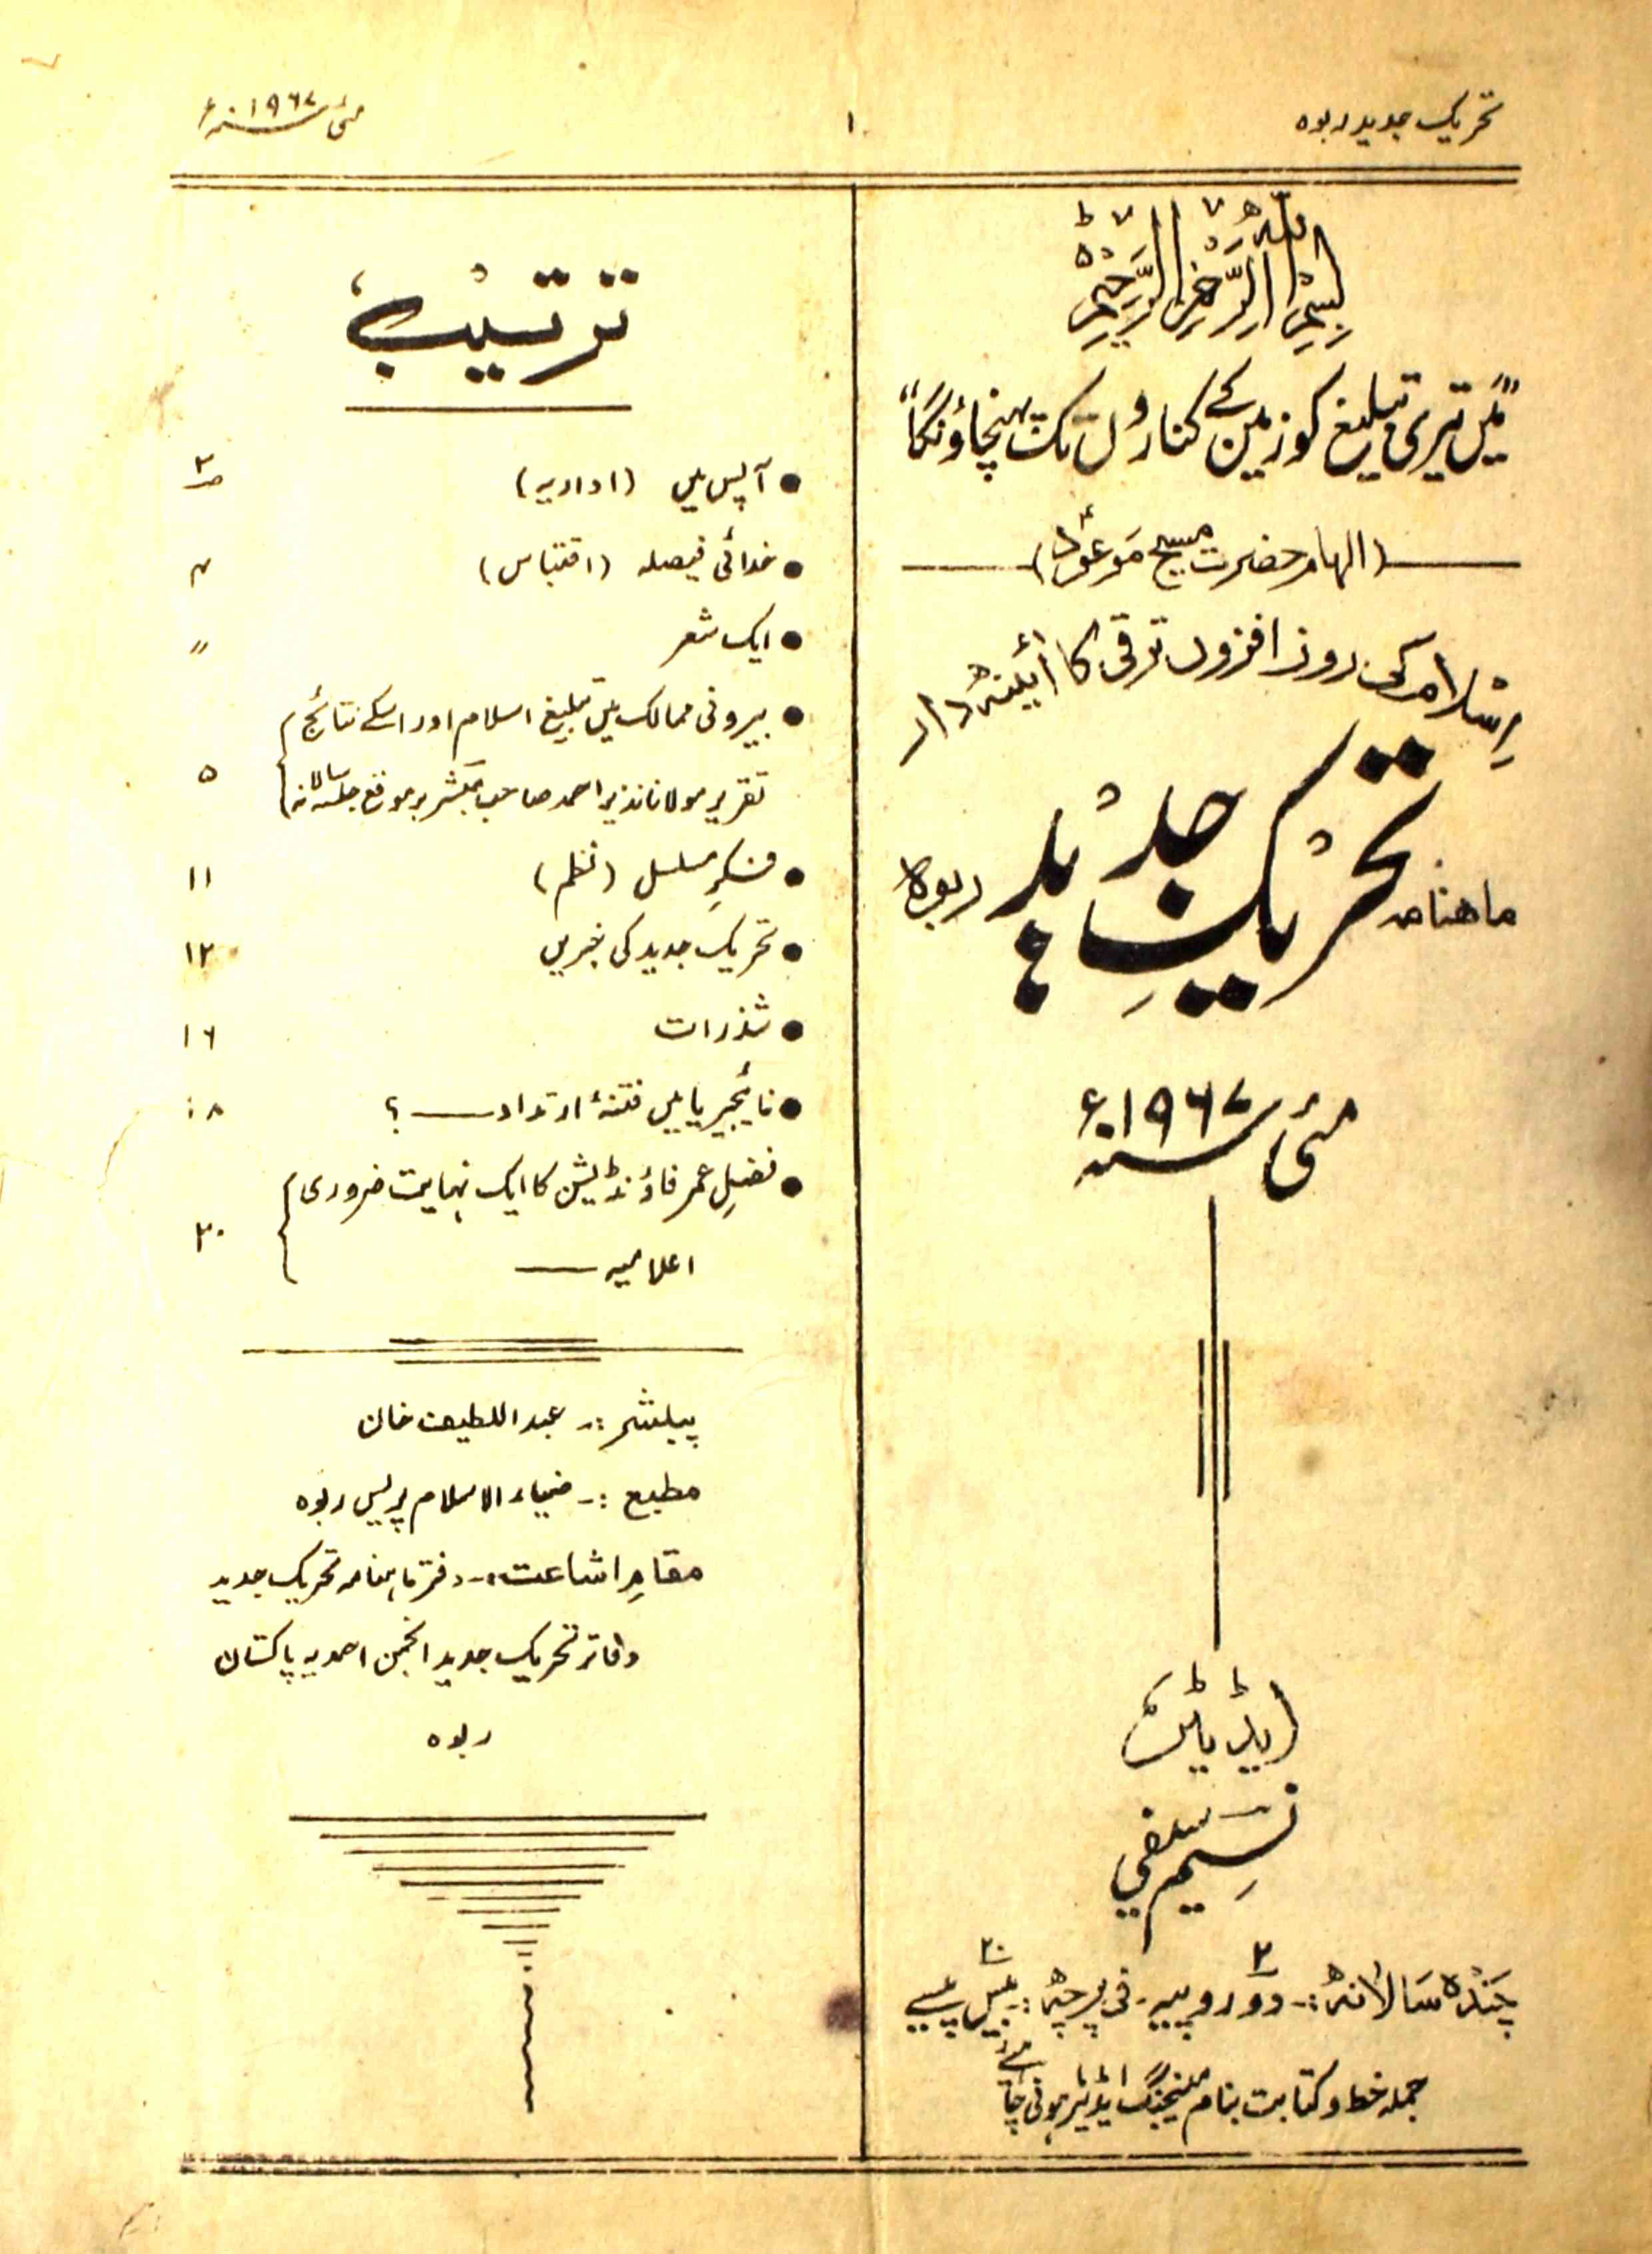 تحریک جدید ربوہ
۱
مئی سنہ ۱۹۶۷ء
بِسْمِ اللّٰهِ الرَّحْمٰنِ الرَّحِيْمِ
"مَیں تیری تبلیغ کو زمین کے کناروں تک پہنچاؤنگا"
(الہام حضرت مسیح موعودؑ)
اِسلام کی روز افزوں ترقی کا آئینہ دار
ماهنامہ تحریکِ جدید ربوہ
مئی سنہ ۱۹۶۷ء
ایڈیٹر
نسیم سیفی
چندہ سالانہ :- دو ۲ روپیہ - فی پرچہ :- بیس ۲۰ پیسے
جملہ خط و کتابت بنام مینیجنگ ایڈیٹر ہونی چاہئے
ترتیب
● آپس میں (اداریہ) ص۲
● خدائی فیصلہ (اقتباس) ۴
● ایک شعر "
● بیرونی ممالک میں تبلیغ اسلام اور اسکے نتائج
تقریر مولانا نذیر احمد صاحب مبشر برموقع جلسہ سالانہ ۵
● فکرِ مسلسل (نظم) ۱۱
● تحریک جدید کی خبریں ۱۲
● شذرات ۱۶
● نائیجیریا میں فتنۂ ارتداد ــــ ؟ ۱۸
● فضلِ عمر فاؤنڈیشن کا ایک نہایت ضروری
اعلامیہ ــــ ۲۰
پبلشر :- عبد اللطیف خان
مطبع :- ضیاء الاسلام پریس ربوہ
مقامِ اشاعت :- دفتر ماہنامہ تحریک جدید
دفاتر تحریک جدید انجمن احمدیہ پاکستان
ربوہ